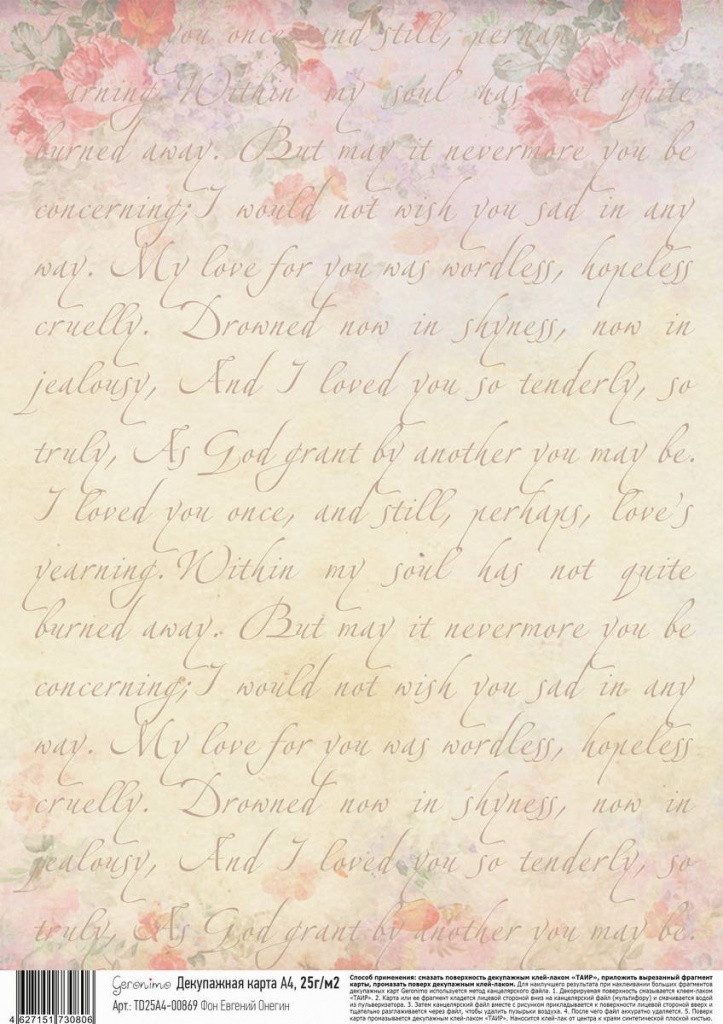 I loved you once, and still, perhaps, love's
yearning. Within my soul has not quite
burned away. But may it nevermore you be
concerning; I would not wish you sad in any
way. My love for you was wordless, hopeless
cruelly. Drowned now in shyness, now in
jealousy, And I loved you so tenderly, so
truly, As God grant by another you may be.
I loved you once, and still, perhaps, love's
yearning. Within my soul has not quite
burned away. But may it nevermore you be
concerning; I would not wish you sad in any
way. My love for you was wordless, hopeless
cruelly. Drowned now in shyness, now in
jealousy, And I loved you so tenderly, so
truly, As God grant by another you may be.
4 627151 730806
Geronimo Декупажная карта А4, 25г/м2
Арт.: TD25A4-00869 Фон Евгений Онегин
Способ применения: смазать поверхность декупажным клей-лаком «ТАИР», приложить вырезанный фрагмент
карты, промазать поверх декупажным клей-лаком. Для наилучшего результата при наклеивании больших фрагментов
декупажных карт Geronimo используется метод канцелярского файла. 1. Декорируемая поверхность смазывается клеем-лаком
«ТАИР». 2. Карта или ее фрагмент кладется лицевой стороной вниз на канцелярский файл (мультифору) и смачивается водой
из пульверизатора. 3. Затем канцелярский файл вместе с рисунком прикладывается к поверхности лицевой стороной вверх и
тщательно разглаживается через файл, чтобы удалить пузырьки воздуха. 4. После чего файл аккуратно удаляется. 5. Поверх
карта промазывается декупажным клеем-лаком «ТАИР». Наносится клей-лак от центра к краям синтетической плоской кистью.